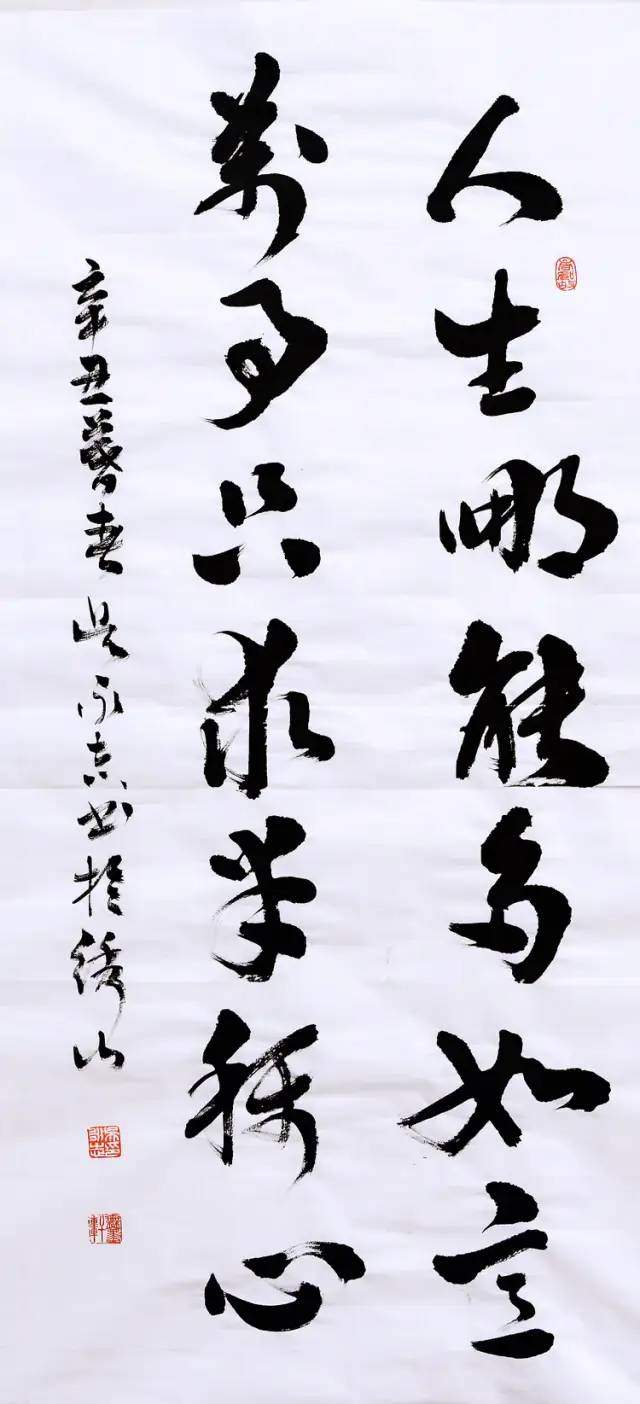 人生哪能多如意
萬事只求半稱心
辛丑暮春吴永志书於绣山